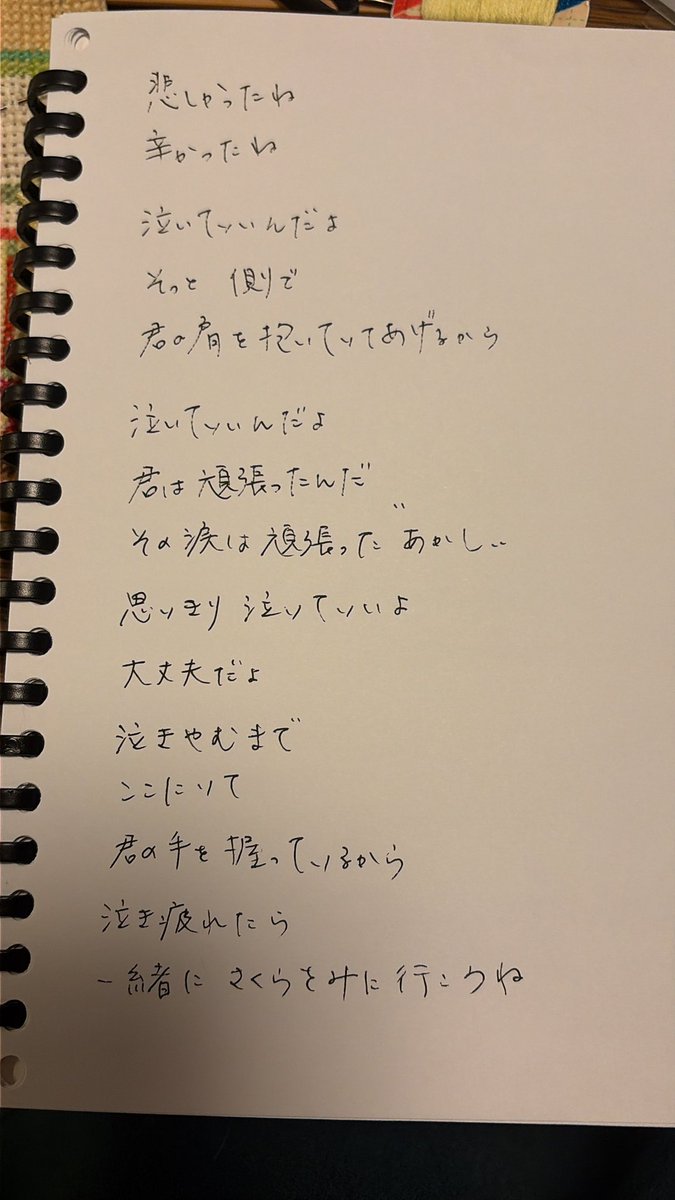 悲しかったね
辛かったね
泣いていいんだよ
そっと 側で
君の肩を抱いていてあげるから
泣いていいんだよ
君は頑張ったんだ
その涙は頑張った〝あかし〟
思いきり泣いていいよ
大丈夫だよ
泣きやむまで
ここにいて
君の手を握っているから
泣き疲れたら
一緒に さくらをみに行こうね